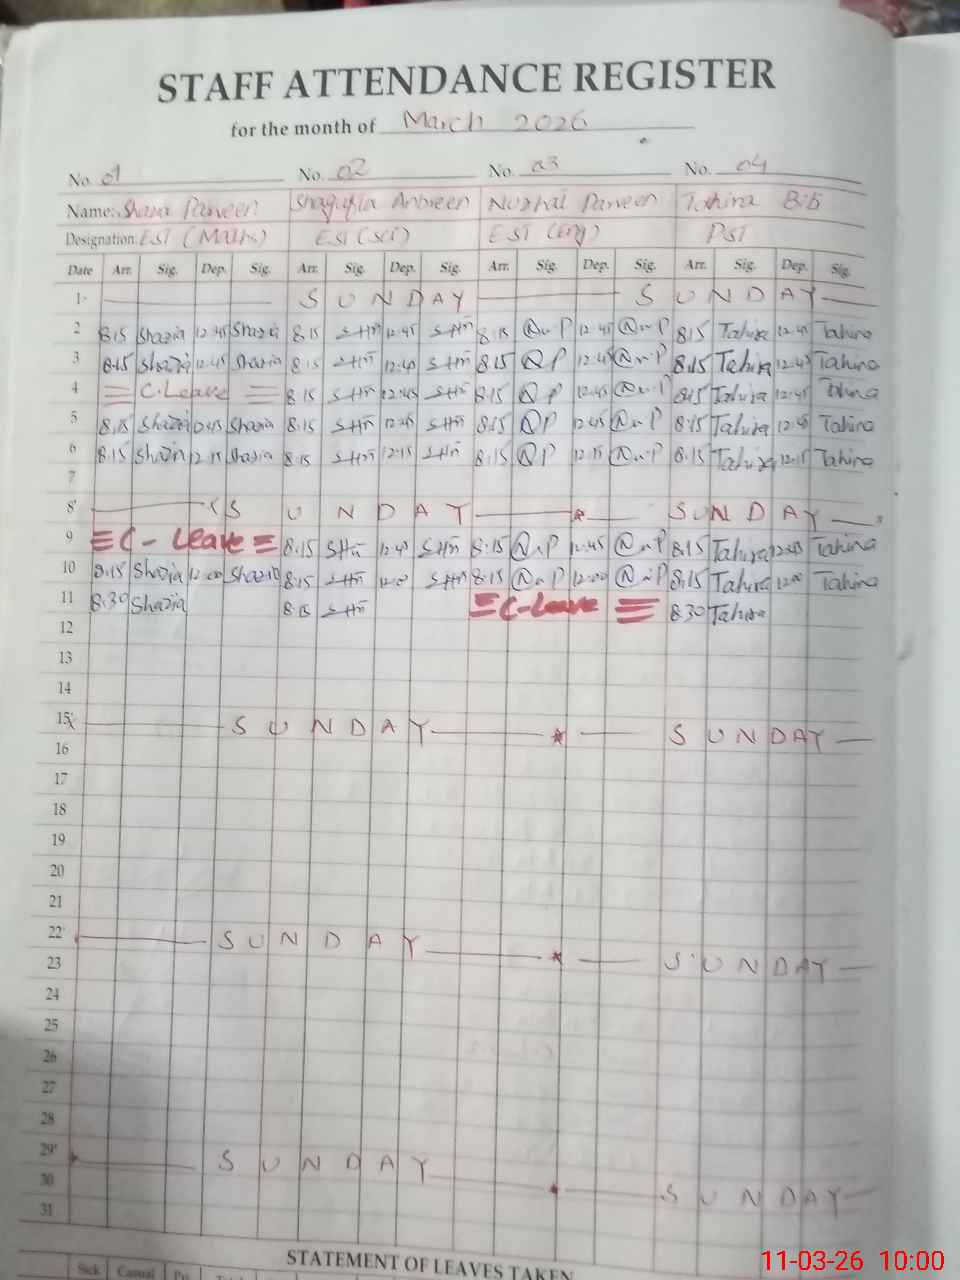 STAFF ATTENDANCE REGISTER
for the month of March 2026
No. 01 No. 02 No. 03 No. 04
Name: Parveen Shagufta Ambreen Nuzhat Parveen Tahira Bibi
Designation: EST (Maths) EST (Sci) EST (Eng) PST
Date Arr. Sig. Dep. Sig. Arr. Sig. Dep. Sig. Arr. Sig. Dep. Sig. Arr. Sig. Dep. Sig.
1 SUNDAY SUNDAY
2 8.15 Shazia 12.45 Shazia 8.15 12.45 8.15 12.45 8.15 Tahira 12.45 Tahira
3 8.15 Shazia 12.45 Shazia 8.15 12.45 8.15 QP 12.45 8.15 Tahira 12.45 Tahira
4 C.Leave 8.15 12.45 8.15 QP 12.45 8.15 Tahira 12.45 Tahira
5 8.15 Shazia 12.45 Shazia 8.15 12.45 8.15 QP 12.45 8.15 Tahira 12.45 Tahira
6 8.15 Shazia 12.15 Shazia 8.15 12.15 8.15 QP 12.15 8.15 Tahira 12.15 Tahira
7
8 SUNDAY SUNDAY
9 C- Leave 8.15 12.45 8.15 12.45 8.15 Tahira 12.45 Tahira
10 8.15 Shazia 12.00 Shazia 8.15 12.00 8.15 12.00 8.15 Tahira 12.00 Tahira
11 8.30 Shazia 8.15 C-Leave 8.30 Tahira
12
13
14
15 SUNDAY SUNDAY
16
17
18
19
20
21
22 SUNDAY
23 SUNDAY
24
25
26
27
28
29 SUNDAY
30 SUNDAY
31
STATEMENT OF LEAVES TAKEN
Sick Casual
11-03-26 10:00